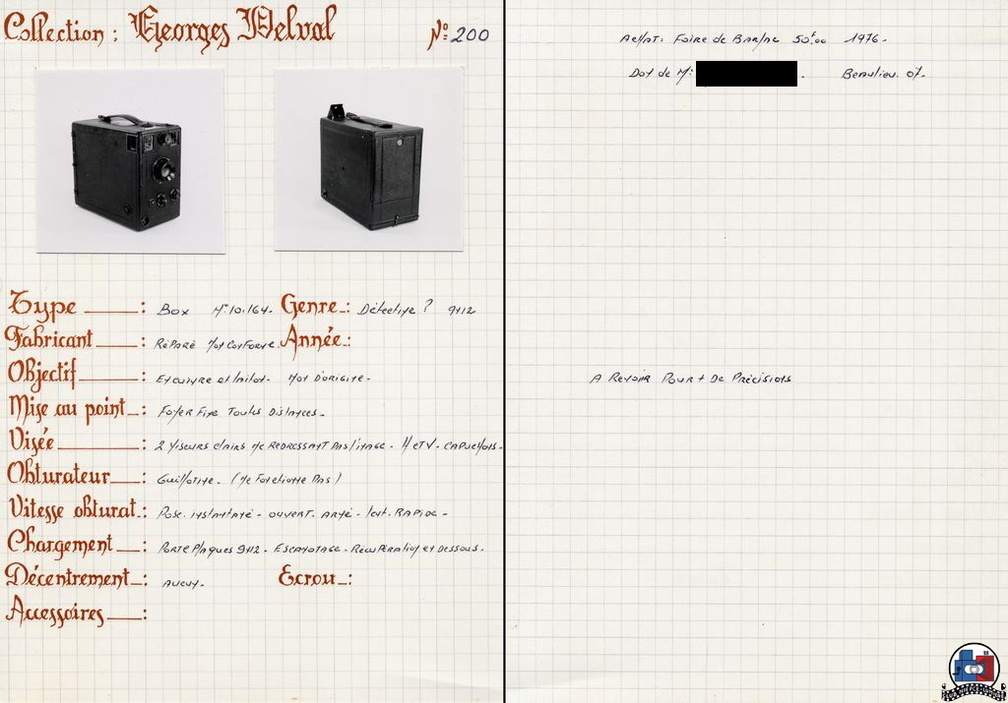 Collection : Georges Delval Nº 200
Type : Box Nº.10.164. Genre : Détective ? 9x12
Fabricant : Réparé Non Conforme. Année :
Objectif : En cuivre et laiton. Non D'origine.
Mise au point : Foyer Fixe Toutes Distances.
Visée : 2 Viseurs clairs Ne Redressant Pas l'image. H et V. Capuchons.
Obturateur : Guillotine. (Ne Fonctionne Pas)
Vitesse obturat. : Pose. instantané - ouvert. Armé - lent. Rapide -
Chargement : Porte Plaques 9x12. Escamotage. Récupération en Dessous.
Décentrement : Aucun. Ecrou :
Accessoires :
Achat : Foire de Barjac 50f.00 1976 -
Don de Mr: . Beaulieu. 07.
A Revoir Pour + De Précisions